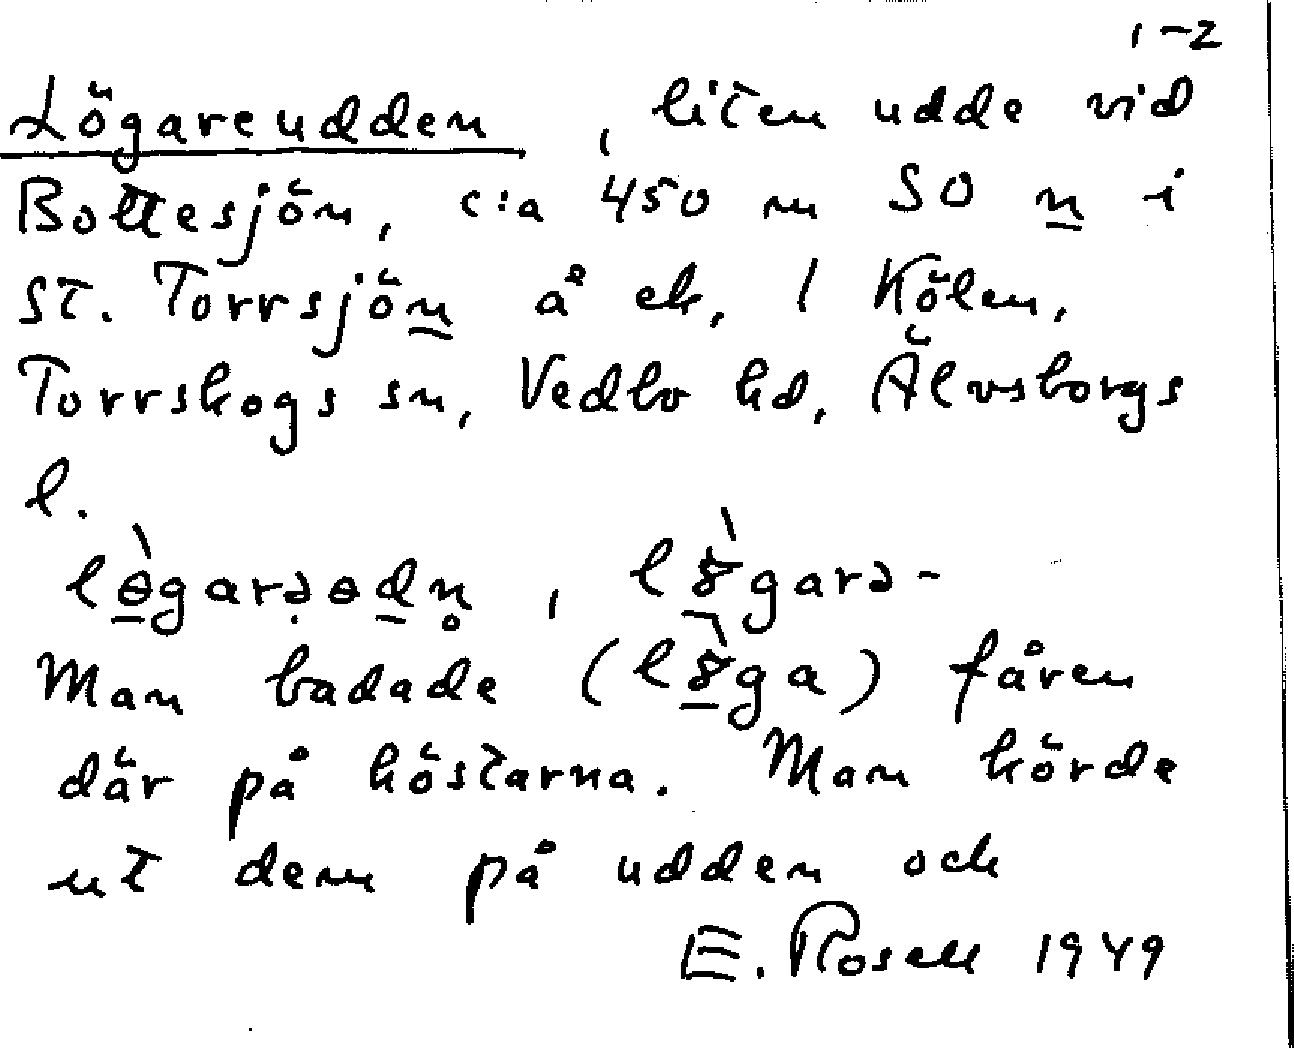 1-2
Lögareudden, liten udde vid
Bottesjön, c:a 450 m SO n i
St. Torrsjön å ek, 1 Kölen,
Torrskogs sn, Vedbo hd, Älvsborgs
l.
lɵ̀garəɵdn̥, lògarə-
Man badade (lòga) fåren
där på höstarna. Man körde
ut dem på udden och
E. Rosell 1949